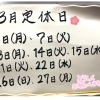 3月定休日
日(月)、7日(火)
日(月)、14日(火)、15日(水)
日(火)、22日(水)
日(日)、27日(月)